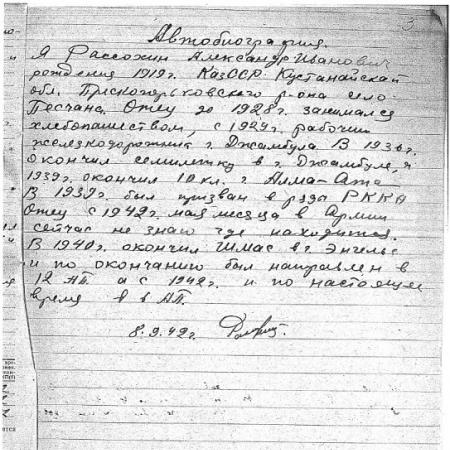 3
Автобиография.
Я Рассохин Александр Иванович
рождения 1919г. КазССР Кустанайской
обл. Пресногорьковского р-она село
Песчана. Отец до 1928г. занимался
хлебопашеством, с 1929г. рабочий
железнодорожник г. Джамбула В 1936г.
окончил семилетку в г. Джамбуле, в
1939г. окончил 10 кл. г. Алма-Ата
В 1939г. был призван в ряды РККА
Отец с 1942г. мая месяца в Армии
сейчас не знаю где находится.
В 1940г. окончил ШМАС в г. Энгельс
и по окончанию был направлен в
12 АП. а с 1942г. и по настоящее
время в АП.
8.9.42г.